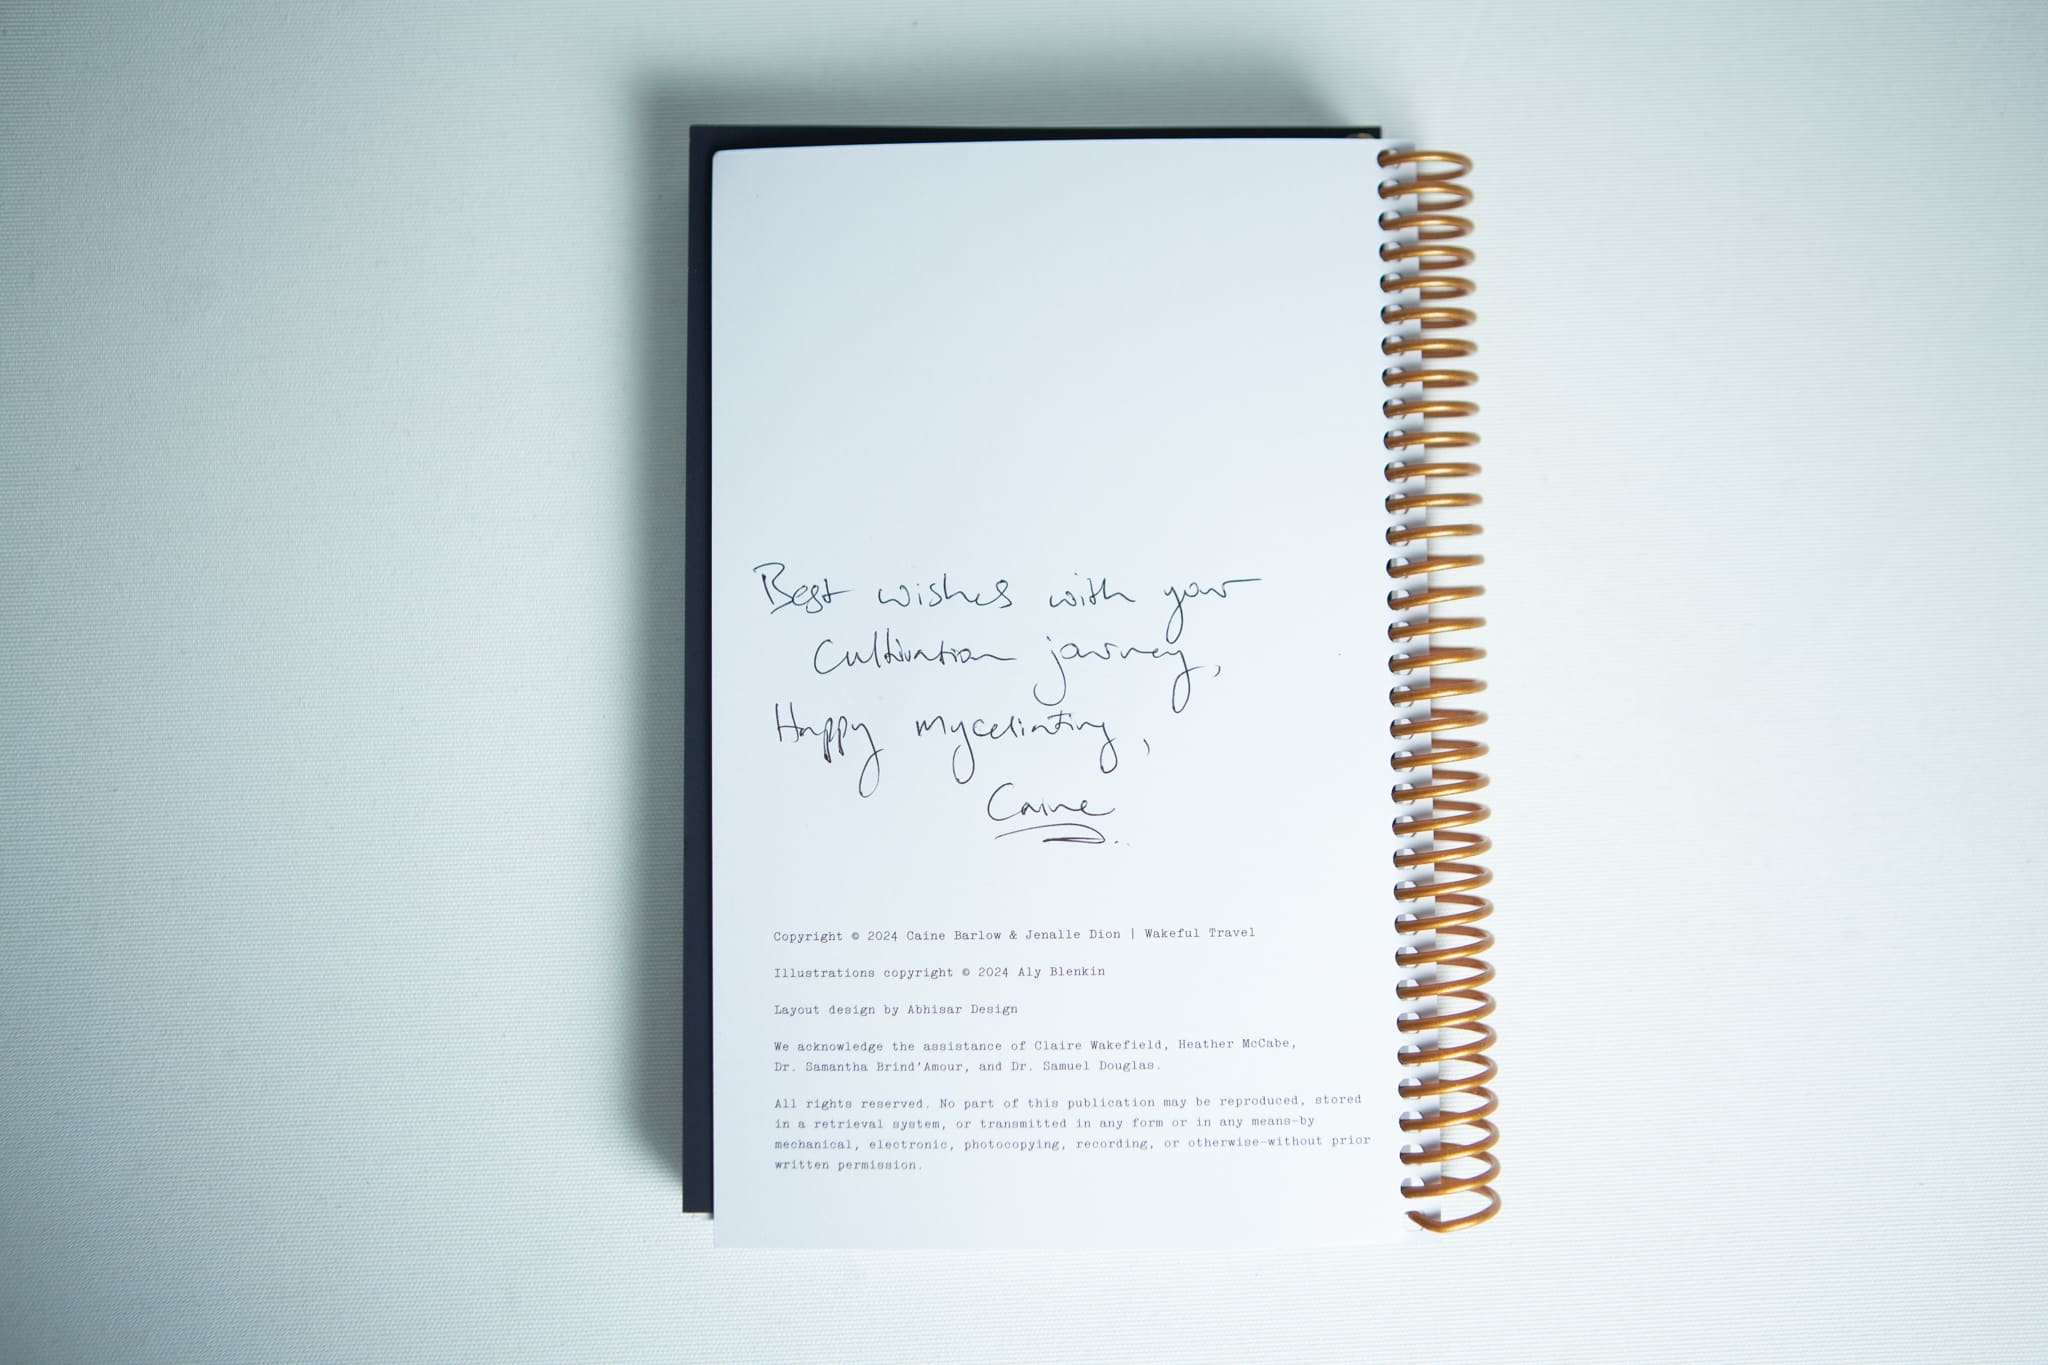 Best wishes with your
Cultivation journey,
Happy myceliating,
Caine
Copyright © 2024 Caine Barlow & Jenalle Dion | Wakeful Travel
Illustrations copyright © 2024 Aly Blenkin
Layout design by Abhisar Design
We acknowledge the assistance of Claire Wakefield, Heather McCabe,
Dr. Samantha Brind'Amour, and Dr. Samuel Douglas.
All rights reserved. No part of this publication may be reproduced, stored
in a retrieval system, or transmitted in any form or in any means—by
mechanical, electronic, photocopying, recording, or otherwise—without prior
written permission.